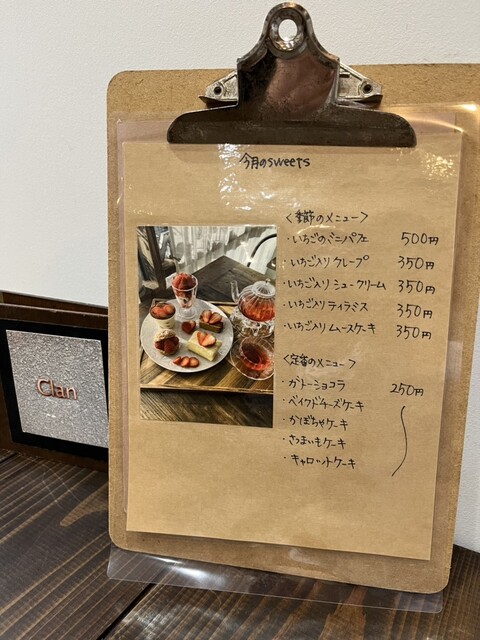 今月のsweets
〈季節のメニュー〉
・いちごのミニパフェ 500円
・いちご入りクレープ 350円
・いちご入りシュークリーム 350円
・いちご入りティラミス 350円
・いちご入りムースケーキ 350円
〈定番のメニュー〉
・ガトーショコラ 250円
・ベイクドチーズケーキ
・かぼちゃケーキ
・さつまいもケーキ
・キャロットケーキ
Clan